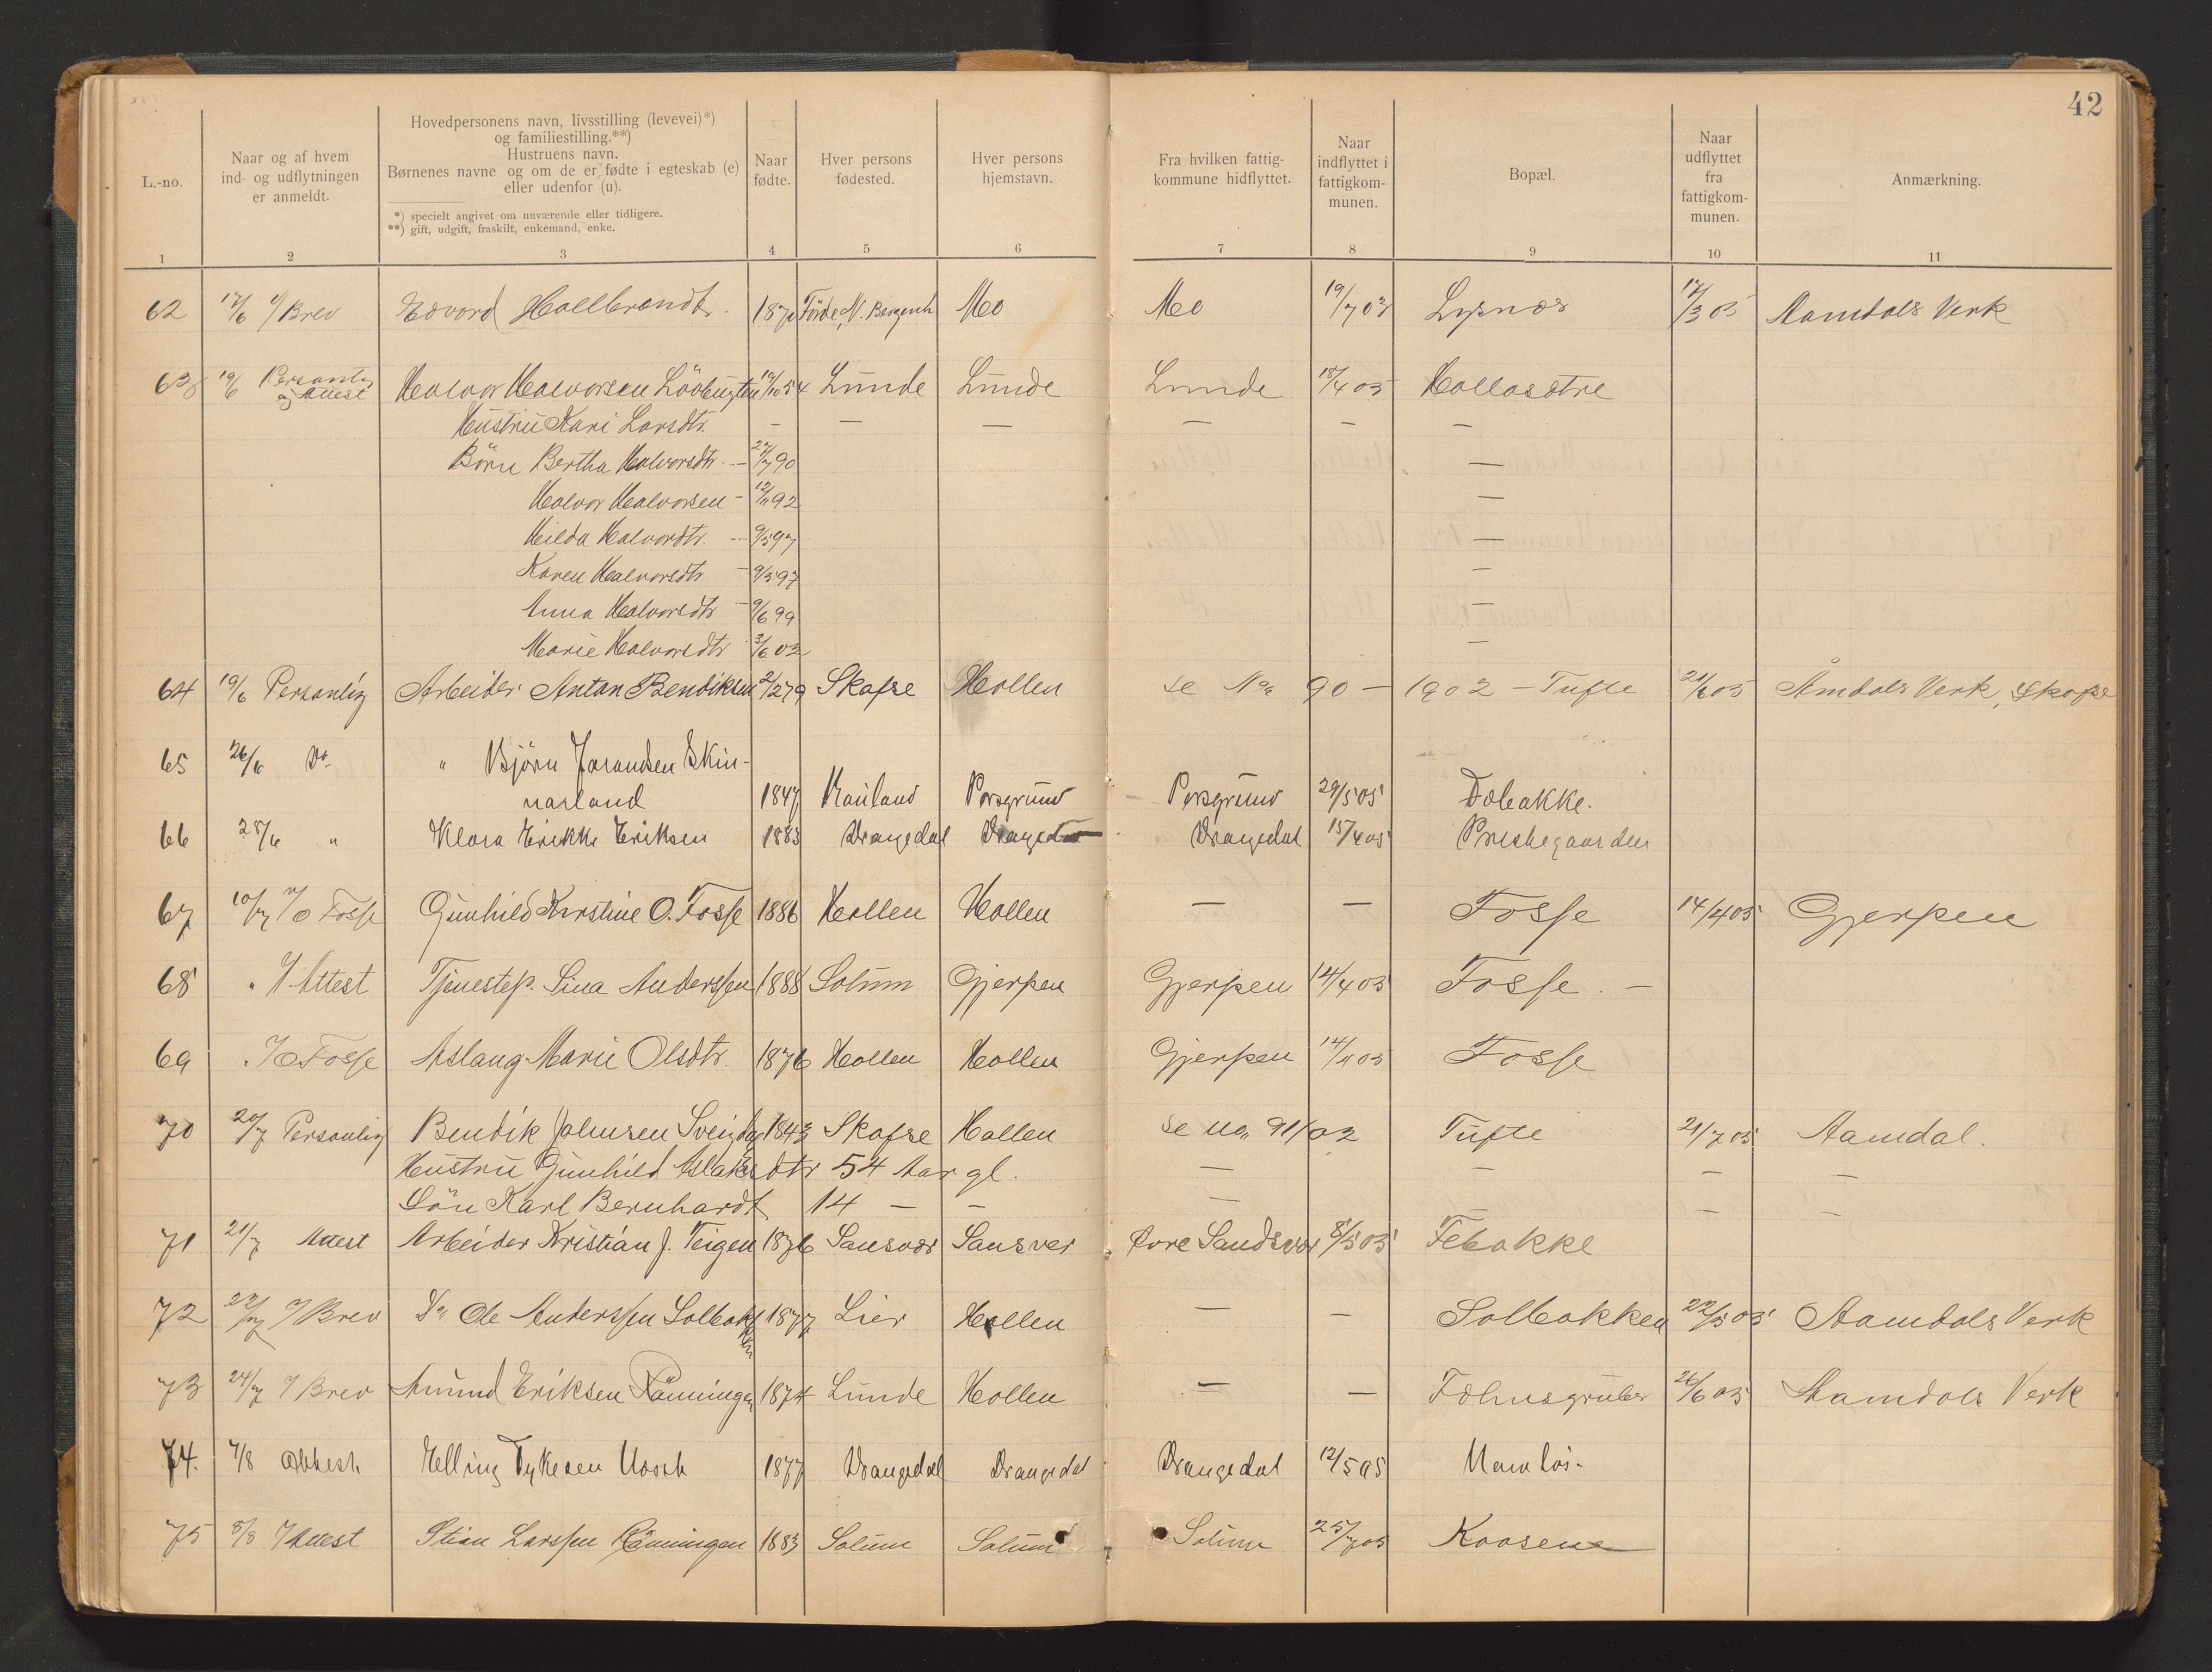 42
L.-no.
Naar og af hvem ind- og udflytningen er anmeldt.
Hovedpersonens navn, livsstilling (levevei)*) og familiestilling.**)
Hustruens navn.
Børnenes navne og om de er fødte i egteskab (e) eller udenfor (u).
*) specielt angivet om nuværende eller tidligere.
**) gift, udgift, fraskilt, enkemand, enke.
Naar fødte.
Hver persons fødested.
Hver persons hjemstavn.
Fra hvilken fattigkommune hidflyttet.
Naar indflyttet i fattigkommunen.
Bopæl.
Naar udflyttet fra fattigkommunen.
Anmærkning.
1 2 3 4 5 6 7 8 9 10 11
62 17/6 Brev Edvard Hallbrandt. 1870 Förde, N. Bergenh Mo Mo 19/7 03 Lysnæs 17/3 05 Aamdals Verk
63 19/6 Personlig og Attest Halvor Halvorsen 19/10 54 Lunde Lunde Lunde 15/4 05
Hustru Kari Larsdtr. – – – – – –
Börn Bertha Halvorsdtr. – 27/7 90 –
Halvor Halvorsen – 12/11 92 –
Hilda Halvordtr. – 9/5 97 –
Karen Halvorsdtr – 9/5 97 –
Anna Halvorsdtr – 9/6 99 –
Marie Halvorsdtr 3/6 02 –
64 19/6 Personlig Arbeider Anton Bendiksen 2/2 79 Skafse Hollen se No 90 – 1902 – Tufte 21/6 05 Åmdals Verk, Skafse
65 26/6 Do. " Björn Jorandsen Skin-
narland 1847 Rauland Porsgrund – Porsgrund 29/5 05 Dalbakke.
66 28/6 " Klara Erikke Eriksen 1883 Drangedal Drangedal Drangedal 15/4 05 Prestegaarden
67 10/7 O Fosse Gunhild Kirstine O. Fosse 1886 Hollen Hollen – – Fosse 14/4 05 Gjerpen
68 " Attest Tjenestep. Sina Anderssen 1888 Solum Gjerpen Gjerpen 14/4 05 Fosse. –
69 " O Fosse Aslaug Marie Olsdtr. 1876 Hollen Hollen Gjerpen 14/4 05 Fosse
70 20/7 Personlig Bendik Johnsen 1843 Skafse Hollen se no. 91/02 Tufte 21/7 05 Aamdal.
Hustru Gunhild Aslaksdtr 54 Aar gl. – – – –
Sön Karl Bernhardt 14 – – – – –
71 21/7 Attest Arbeider Kristian J. Teigen 1876 Sansvær Sansver Øvre Sandsvær 8/5 05 Febakke
72 22/7 Brev Do Ole Anderssen Solbakken 1877 Lier Hollen – – Solbakken 22/5 05 Aamdals Verk
73 24/7 Brev Amund Eriksen Rönningen 1874 Lunde Hollen – – 26/6 05 Aamdals Verk
74. 7/8 Attest. Elling Tykesen 1877 Drangedal Drangedal Drangedal 12/5 05
75 8/8 Attest Stian Larssen Rönningen 1883 Solum Solum Solum 25/7 05 Kaasene